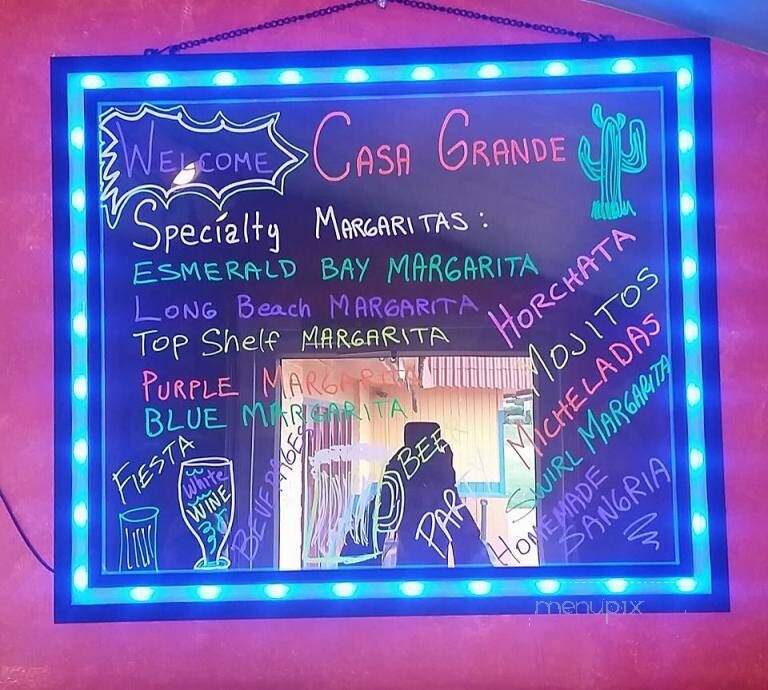 WELCOME CASA GRANDE
Specíalty MARGARITAS:
ESMERALD BAY MARGARITA
LONG Beach MARGARITA
Top Shelf MARGARITA
PURPLE MARGARITA
BLUE MARGARITA
HORCHATA
MOJITOS
MICHELADAS
SWIRL MARGARITA
HOMEMADE
SANGRIA
FIESTA
White
WINE
BEVERAGES
BEER
PARTY
menupix